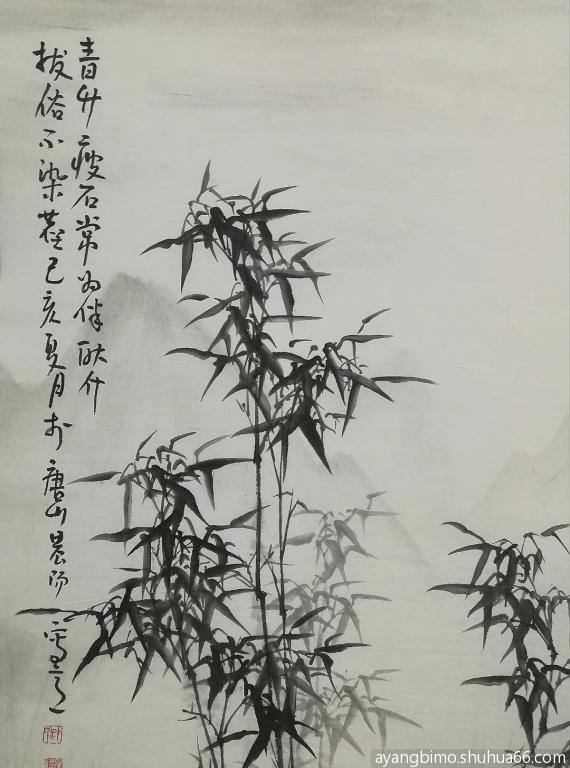 青竹瘦石常为伴耿介
拔俗不染尘己亥夏月于唐山晨阳
ayangbimo.shuhua66.com